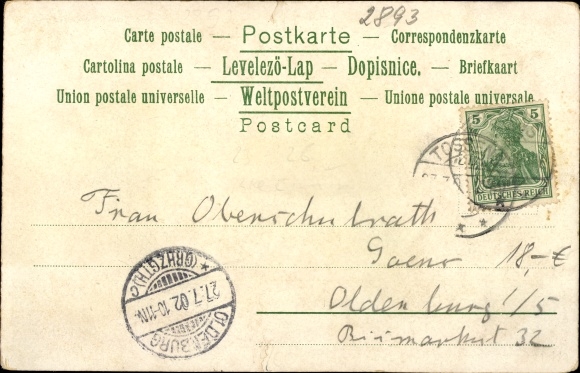 2893
Carte postale — Postkarte — Correspondenzkarte
Cartolina postale — Levelezö-Lap — Dopisnice. — Briefkaart
Union postale universelle — Weltpostverein — Unione postale universale
Postcard
5 5
DEUTSCHES REICH
TOSS
Frau Oberschulrath
Goens 18,-€
Oldenburg i/G
Bismarkstr 32
OLDENBURG (GRHZGTH.) *
27.7.02.10-11N.